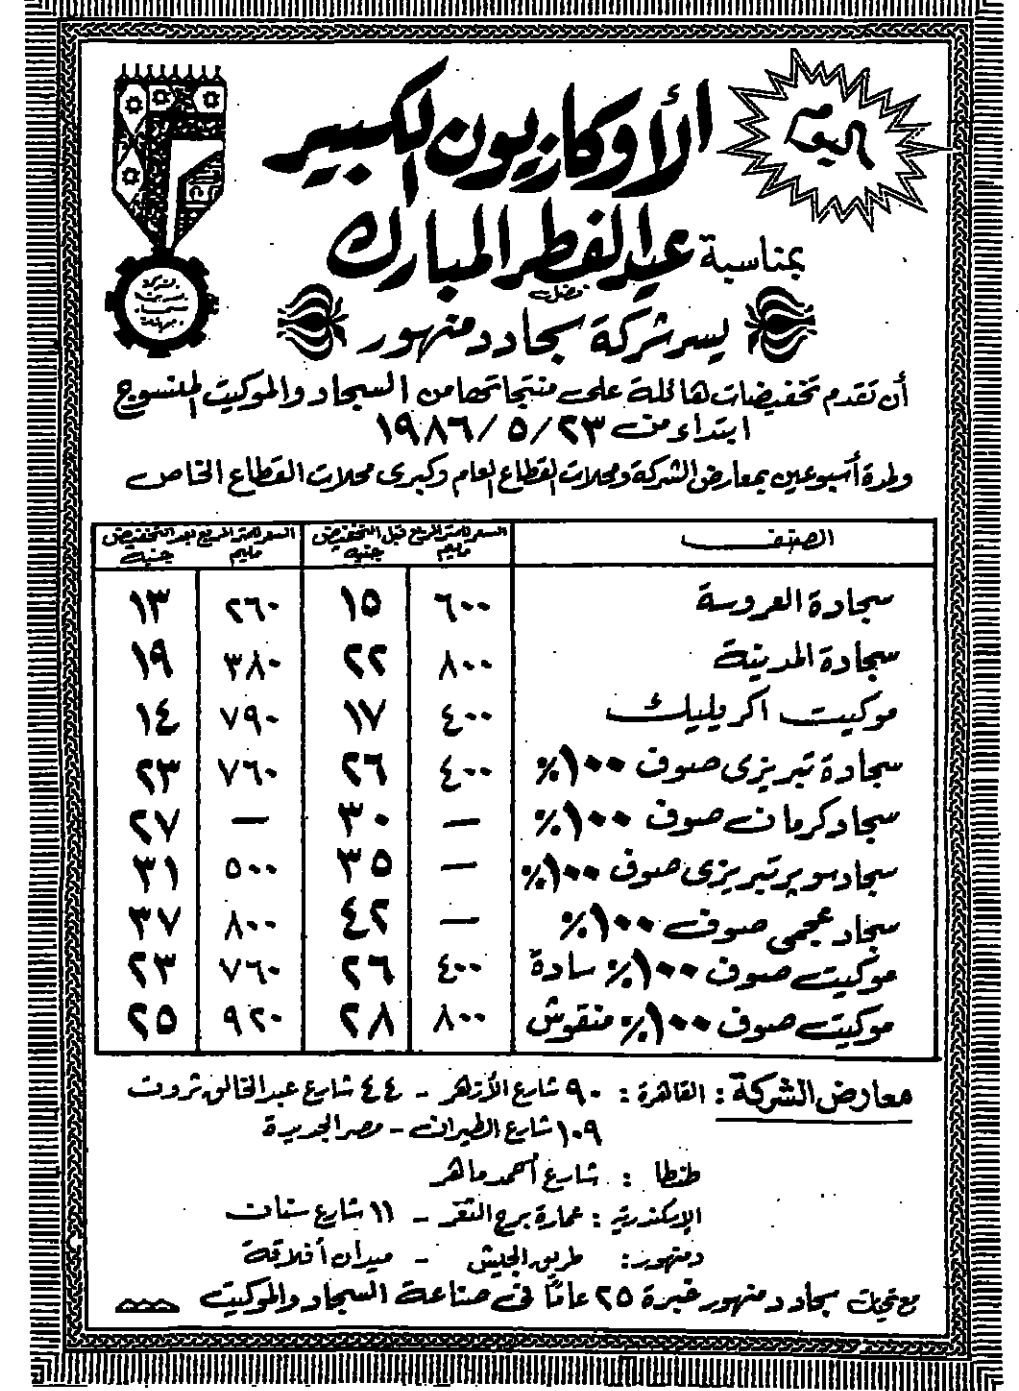 اليوم
الأوكازيون الكبير
بمناسبة عيد الفطر المبارك
يسر شركة سجاد دمنهور
أن تقدم تخفيضات هائلة على منتجاتها من السجاد والموكيت المنسوج
ابتداء من ٢٣/٥/١٩٨٦
ولمدة أسبوعين بمعارض الشركة ومحلات القطاع العام وكبرى محلات القطاع الخاص
الصنف السعر للمتر المربع قبل التخفيض السعر للمتر المربع بعد التخفيض
مليم جنيه مليم جنيه
سجادة العروسة ٦٠٠ ١٥ ٢٦٠ ١٣
سجادة المدينة ٨٠٠ ٢٢ ٣٨٠ ١٩
موكيت اكريليك ٤٠٠ ١٧ ٧٩٠ ١٤
سجادة تبريزى صوف ١٠٠٪ ٤٠٠ ٢٦ ٧٦٠ ٢٣
سجاد كرمان صوف ١٠٠٪ — ٣٠ — ٢٧
سجاد سوبر تبريزى صوف ١٠٠٪ — ٣٥ ٥٠٠ ٣١
سجاد عجمى صوف ١٠٠٪ — ٤٢ ٨٠٠ ٣٧
موكيت صوف ١٠٠٪ سادة ٤٠٠ ٢٦ ٧٦٠ ٢٣
موكيت صوف ١٠٠٪ منقوش ٨٠٠ ٢٨ ٩٢٠ ٢٥
معارض الشركة : القاهرة : ٩٠ شارع الأزهر - ٤٤ شارع عبد الخالق ثروت
١٠٩ شارع الطيران - مصر الجديدة
طنطا : شارع أحمد ماهر
الإسكندرية : عمارة برج الثغر - ١١ شارع ستات
دمنهور : طريق الجيش - ميدان أفلاقة
مع تحيات سجاد دمنهور خبرة ٢٥ عامًا فى صناعة السجاد والموكيت